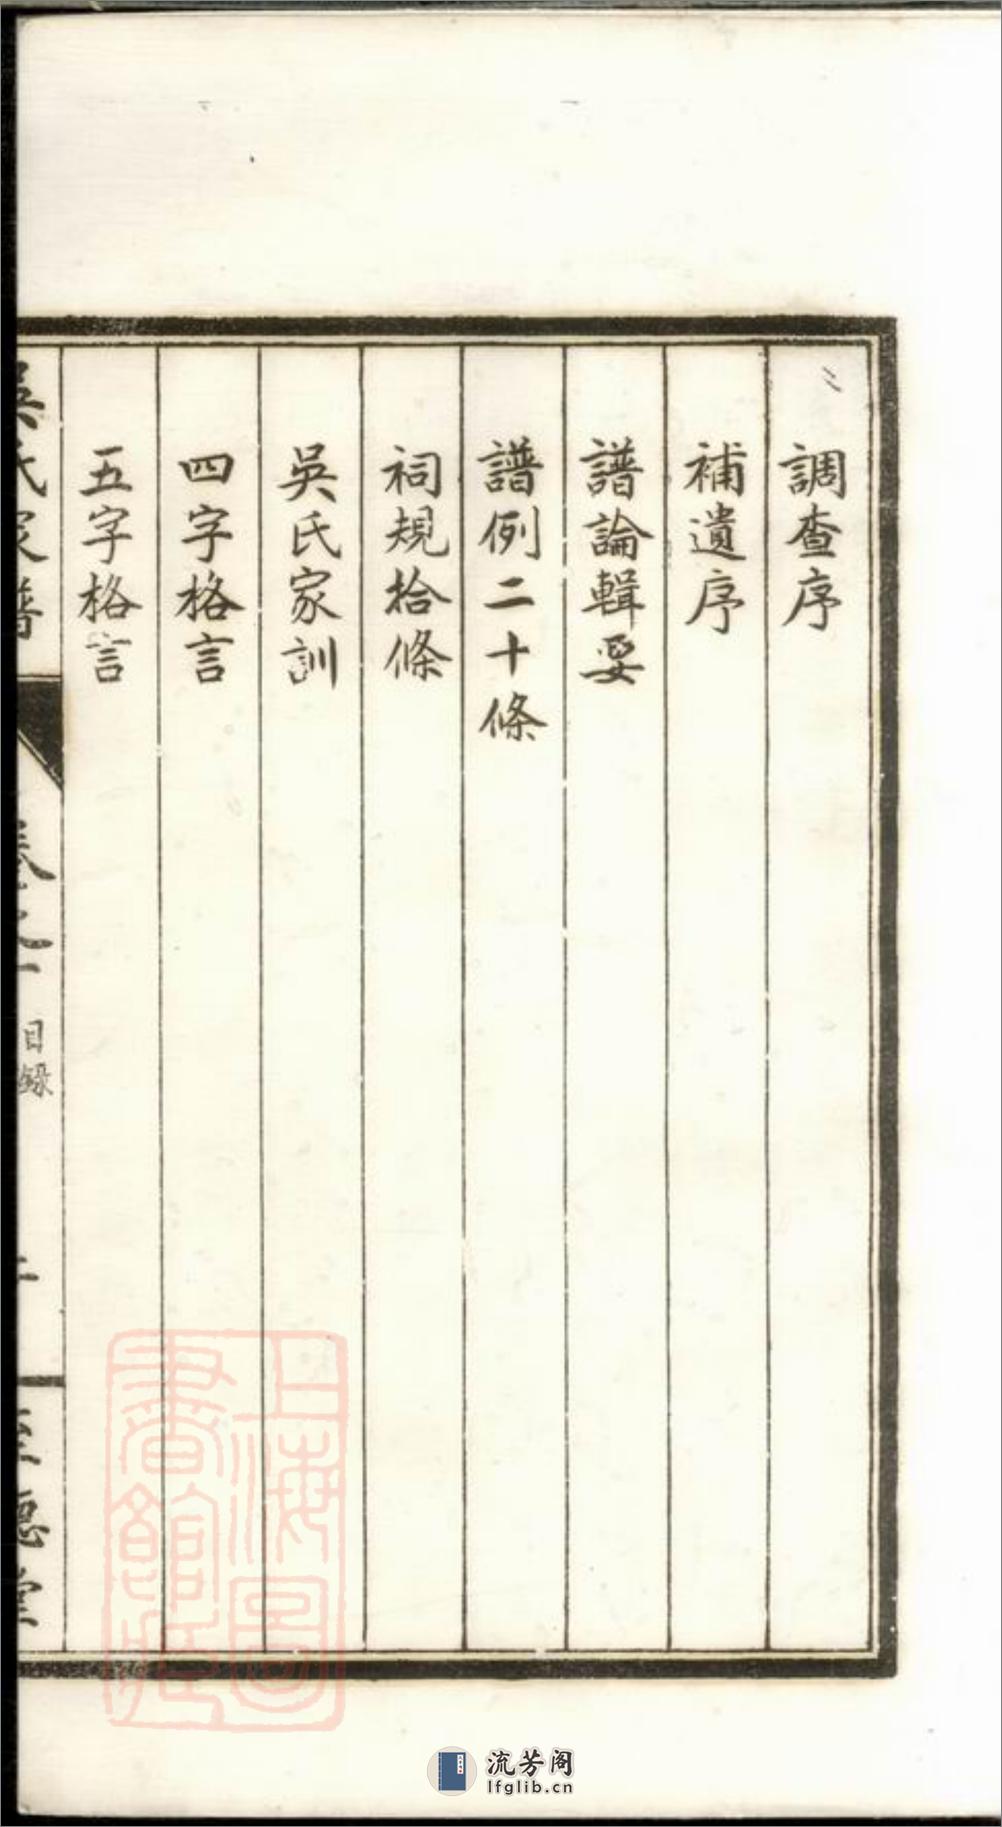 調查序
補遺序
譜論輯要
譜例二十條
祠規拾條
吳氏家訓
四字格言
五字格言
吳氏家譜
卷之一
目錄
至德堂
上海圖書館藏
流芳阁
lfglib.cn